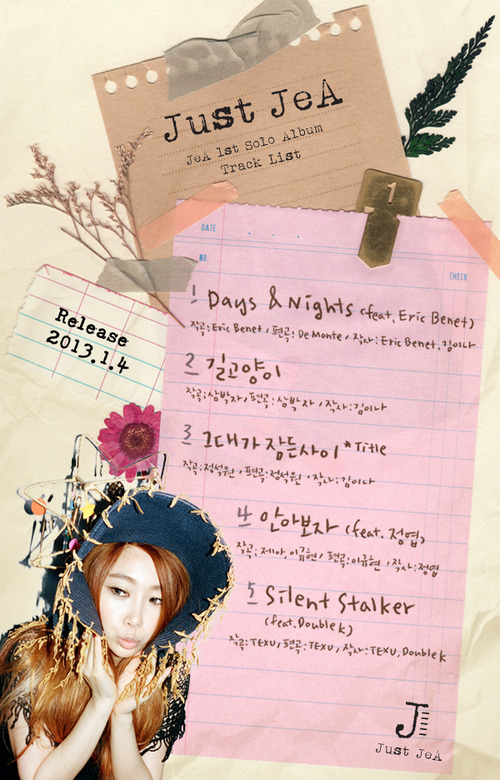 Just JeA
JeA 1st Solo Album
Track List
DATE . . .
NO.
CHECK
1
Release
2013.1.4
1 Days & Nights (feat. Eric Benet)
작곡:Eric Benet / 편곡: De Monte / 작사: Eric Benet, 김이나
2 길고양이
작곡:삼박자 / 편곡:삼박자 / 작사:김이나
3 그대가 잠든사이 *Title
작곡:정석원 / 편곡:정석원 / 작사:김이나
4 안아보자 (feat. 정엽)
작곡: 제아, 이규현 / 편곡:이규현 / 작사:정엽
5 Silent Stalker
(feat. Double K)
작곡:TEXU, 편곡:TEXU, 작사:TEXU, Double K
J
Just JeA